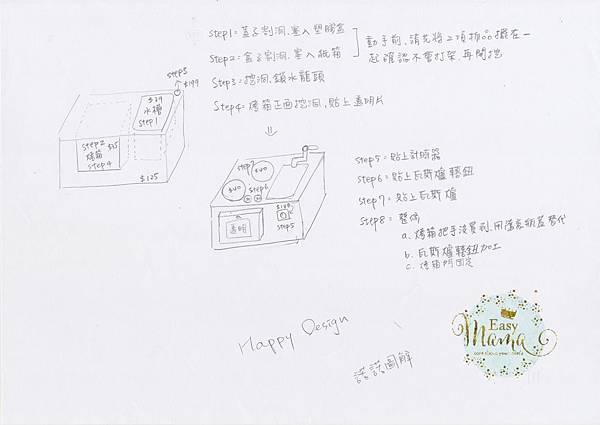 step1=蓋子割洞.塞入塑膠盒
step2=盒子割洞.塞入紙箱
動手前,請先將2項物品擺在一
起確認不會打架,再開挖
step3=挖洞.鎖水龍頭
step4=烤箱正面挖洞,貼上透明片
step3
$199
$39
水槽
step1
step2
烤箱
step4
$125
step5=貼上計時器
step6=貼上瓦斯爐轉鈕
step7=貼上瓦斯爐
step8=整修
a.烤箱把手沒買到,用
瓶蓋替代
b.瓦斯爐轉鈕加工
c.烤箱門固定
step7
$40
$40
step6
透明
step5
Happy Design
圖解
Easy
Mama